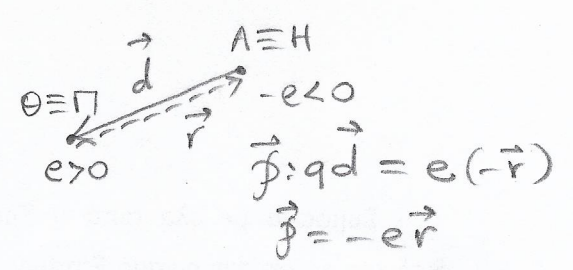 d⃗
Λ≡Η
Θ≡Π
-e<0
r⃗
e>0
p⃗:qd⃗ = e(-r⃗)
p⃗=-er⃗